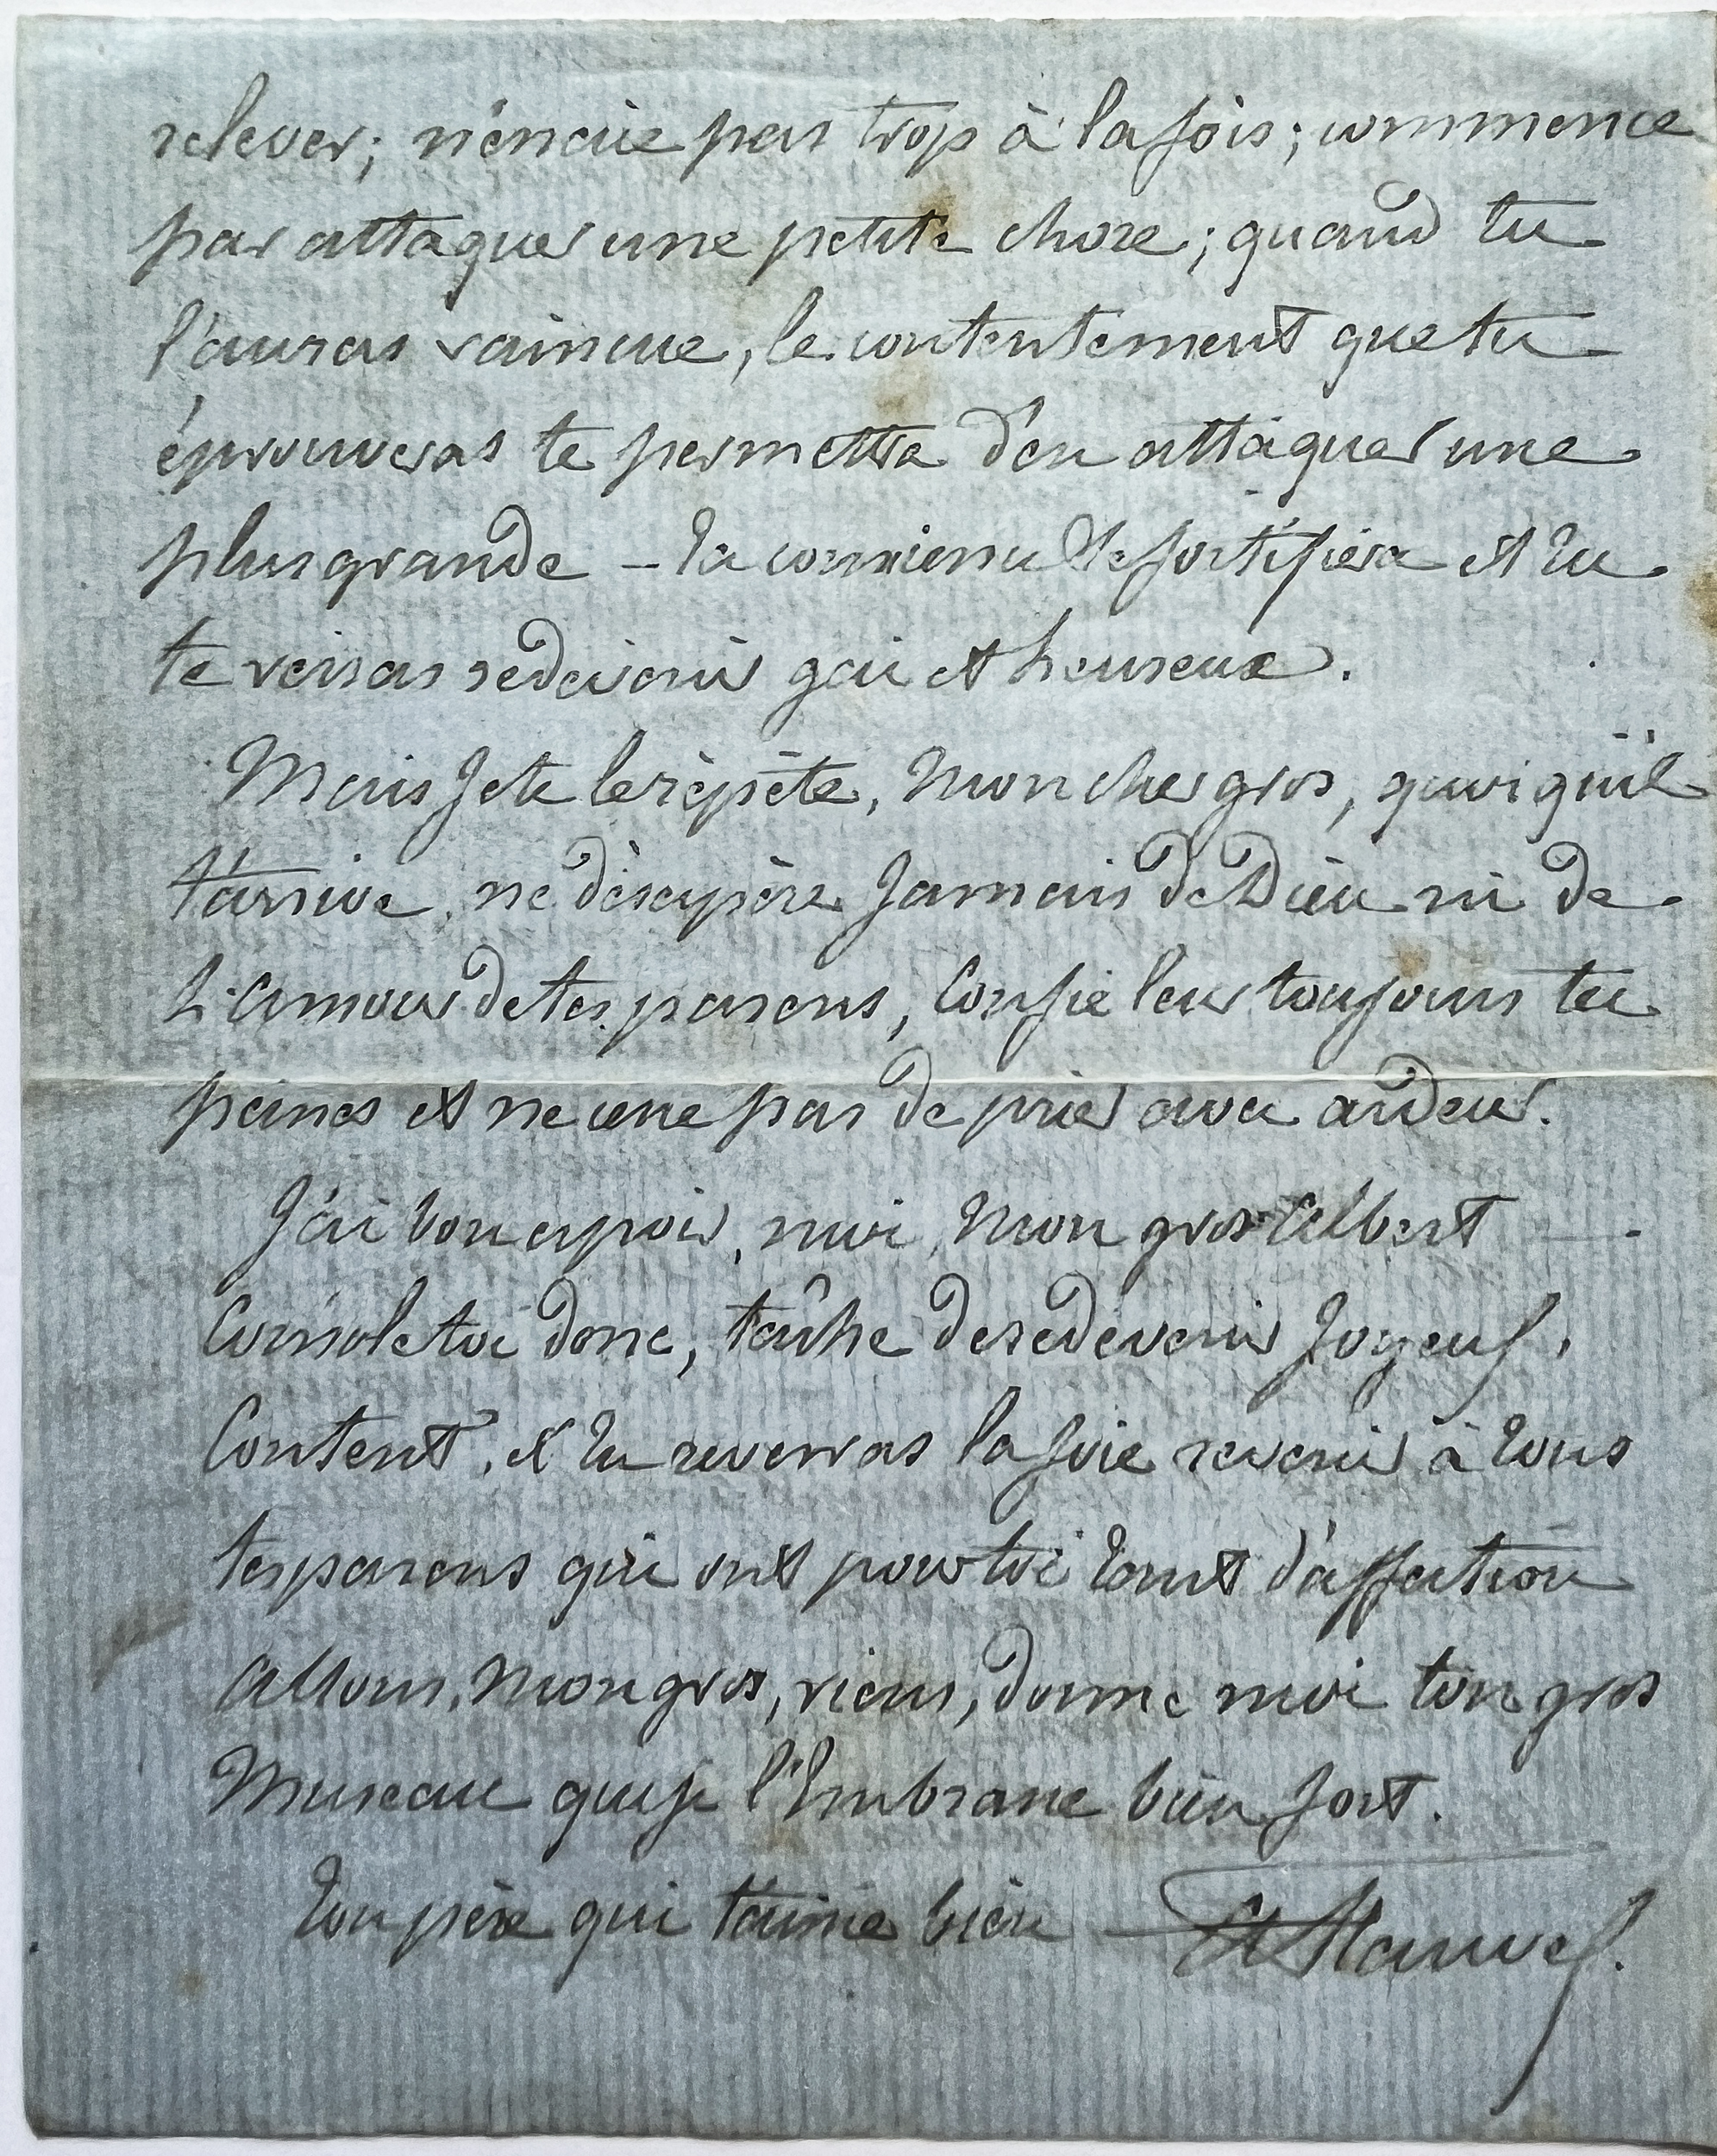 relever; n'éncaie pas trop à la fois; commence
par attaquer une petite chose; quand tu
l'auras vaincue, le contentement que tu
éprouveras te permettra d'en attaquer une
plus grande - ta conscience te fortifiera et tu
te verras redevenir gai et heureux.
Mais Je te le répète, Mon cher gros, quoiqu'il
t'arrive, ne désespère Jamais de Dieu ni de
L'amour de tes parens, Confie leur toujours tes
peines et ne cesse pas de prier avec ardeur.
J'ai bon espoir, moi, Mon gros Albert
Console toi donc, tâche de redevenir Joyeux,
Content, et tu reverras la joie revenir à tous
tes parens qui ont pour toi tant d'affection
allons, Mon gros, viens, donne moi ton gros
Museau que je l'Embrasse bien fort.
ton père qui t'aime bien